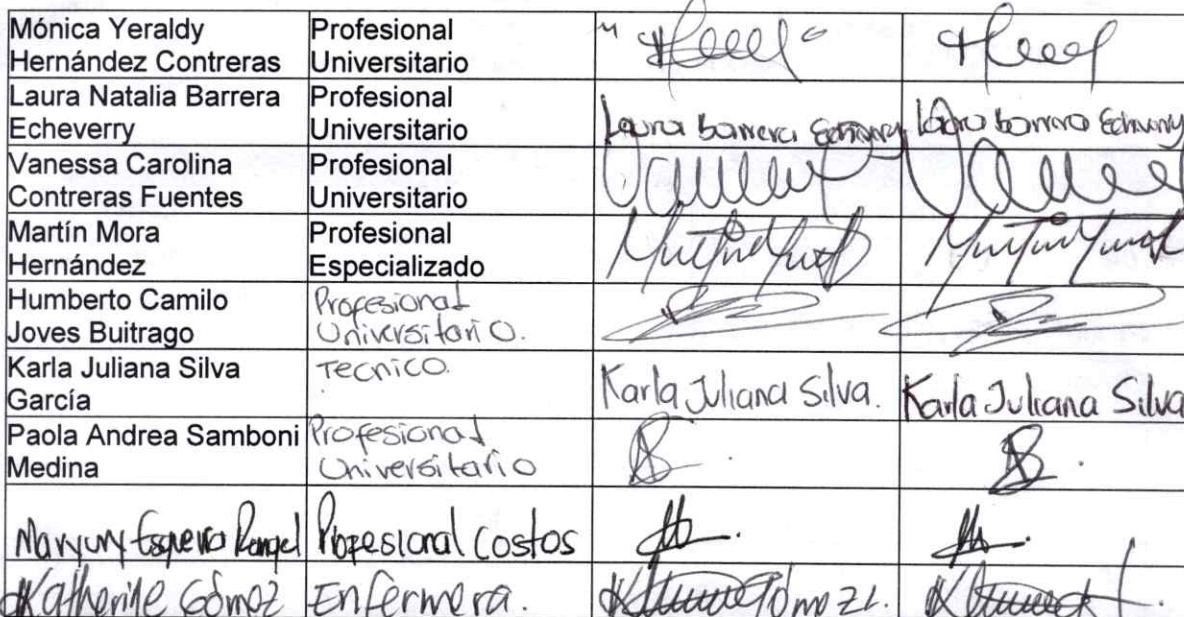 Mónica Yeraldy
Hernández Contreras
Profesional
Universitario
Laura Natalia Barrera
Echeverry
Profesional
Universitario
Laura barrera Echeverry
Laura barrera Echeverry
Vanessa Carolina
Contreras Fuentes
Profesional
Universitario
Martín Mora
Hernández
Profesional
Especializado
Humberto Camilo
Joves Buitrago
Profesional
Universitario.
Karla Juliana Silva
García
Tecnico.
Karla Juliana Silva.
Karla Juliana Silva
Paola Andrea Samboni
Medina
Profesional
Universitario
Rangel
Profesional Costos
Katherine Gómez
Enfermera.